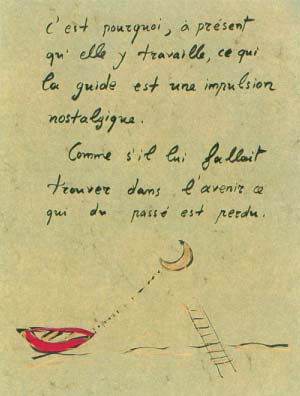 c'est pourquoi, à présent
qu'elle y travaille, ce qui
la guide est une impulsion
nostalgique.
Comme s'il lui fallait
trouver dans l'avenir ce
qui du passé est perdu.